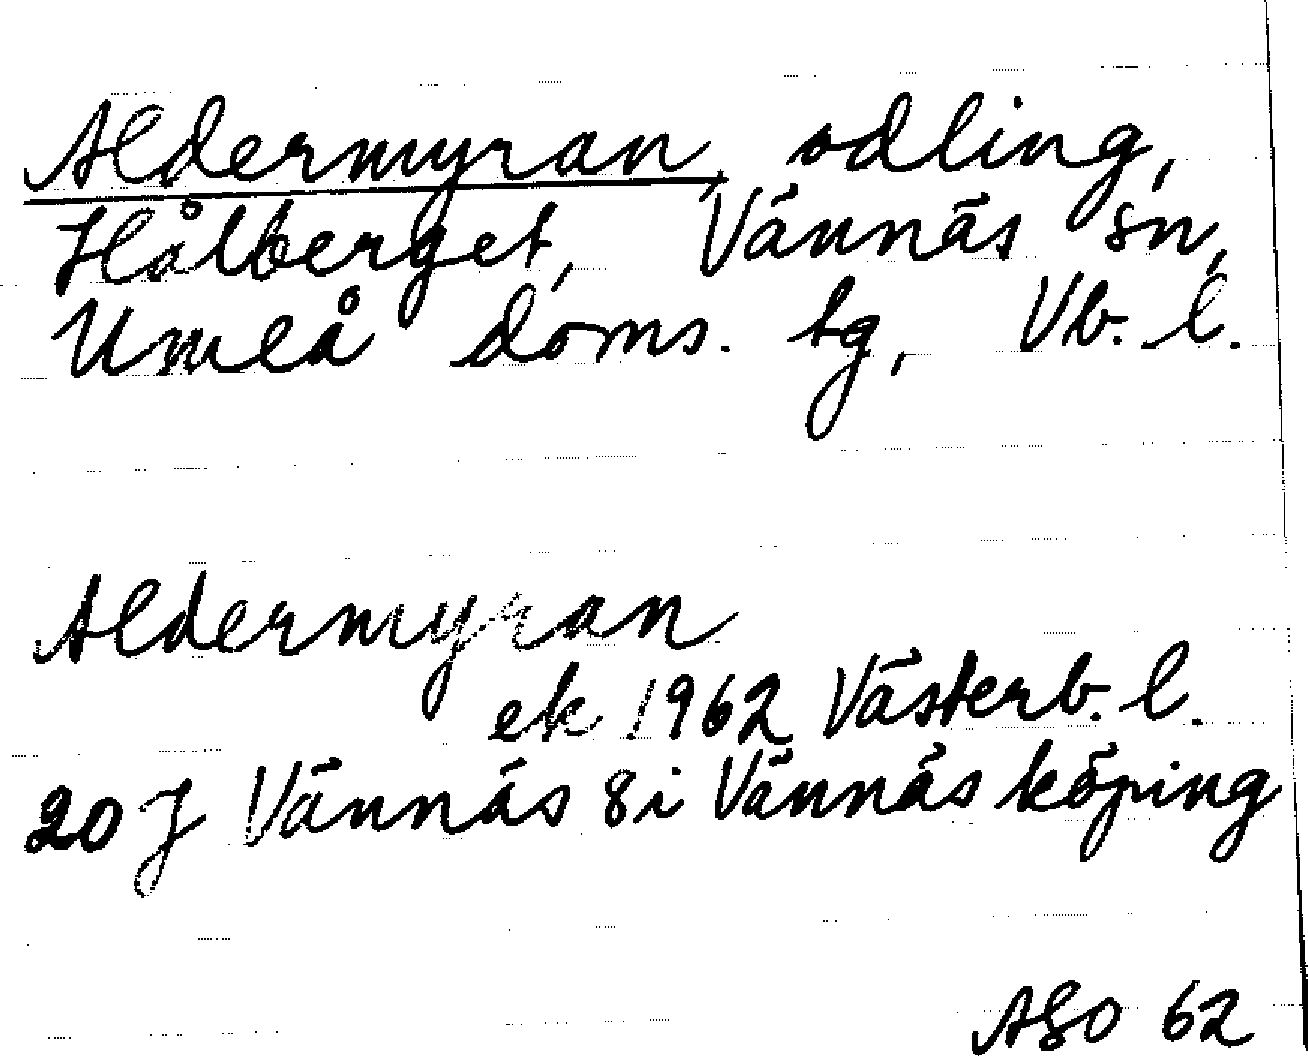 Aldermyran, odling,
Hålberget, Vännäs sn,
Umeå doms. tg, Vb. l.
Aldermyran
ek 1962 Västerb. l.
20 J Vännäs 8i Vännäs köping
ASO 62